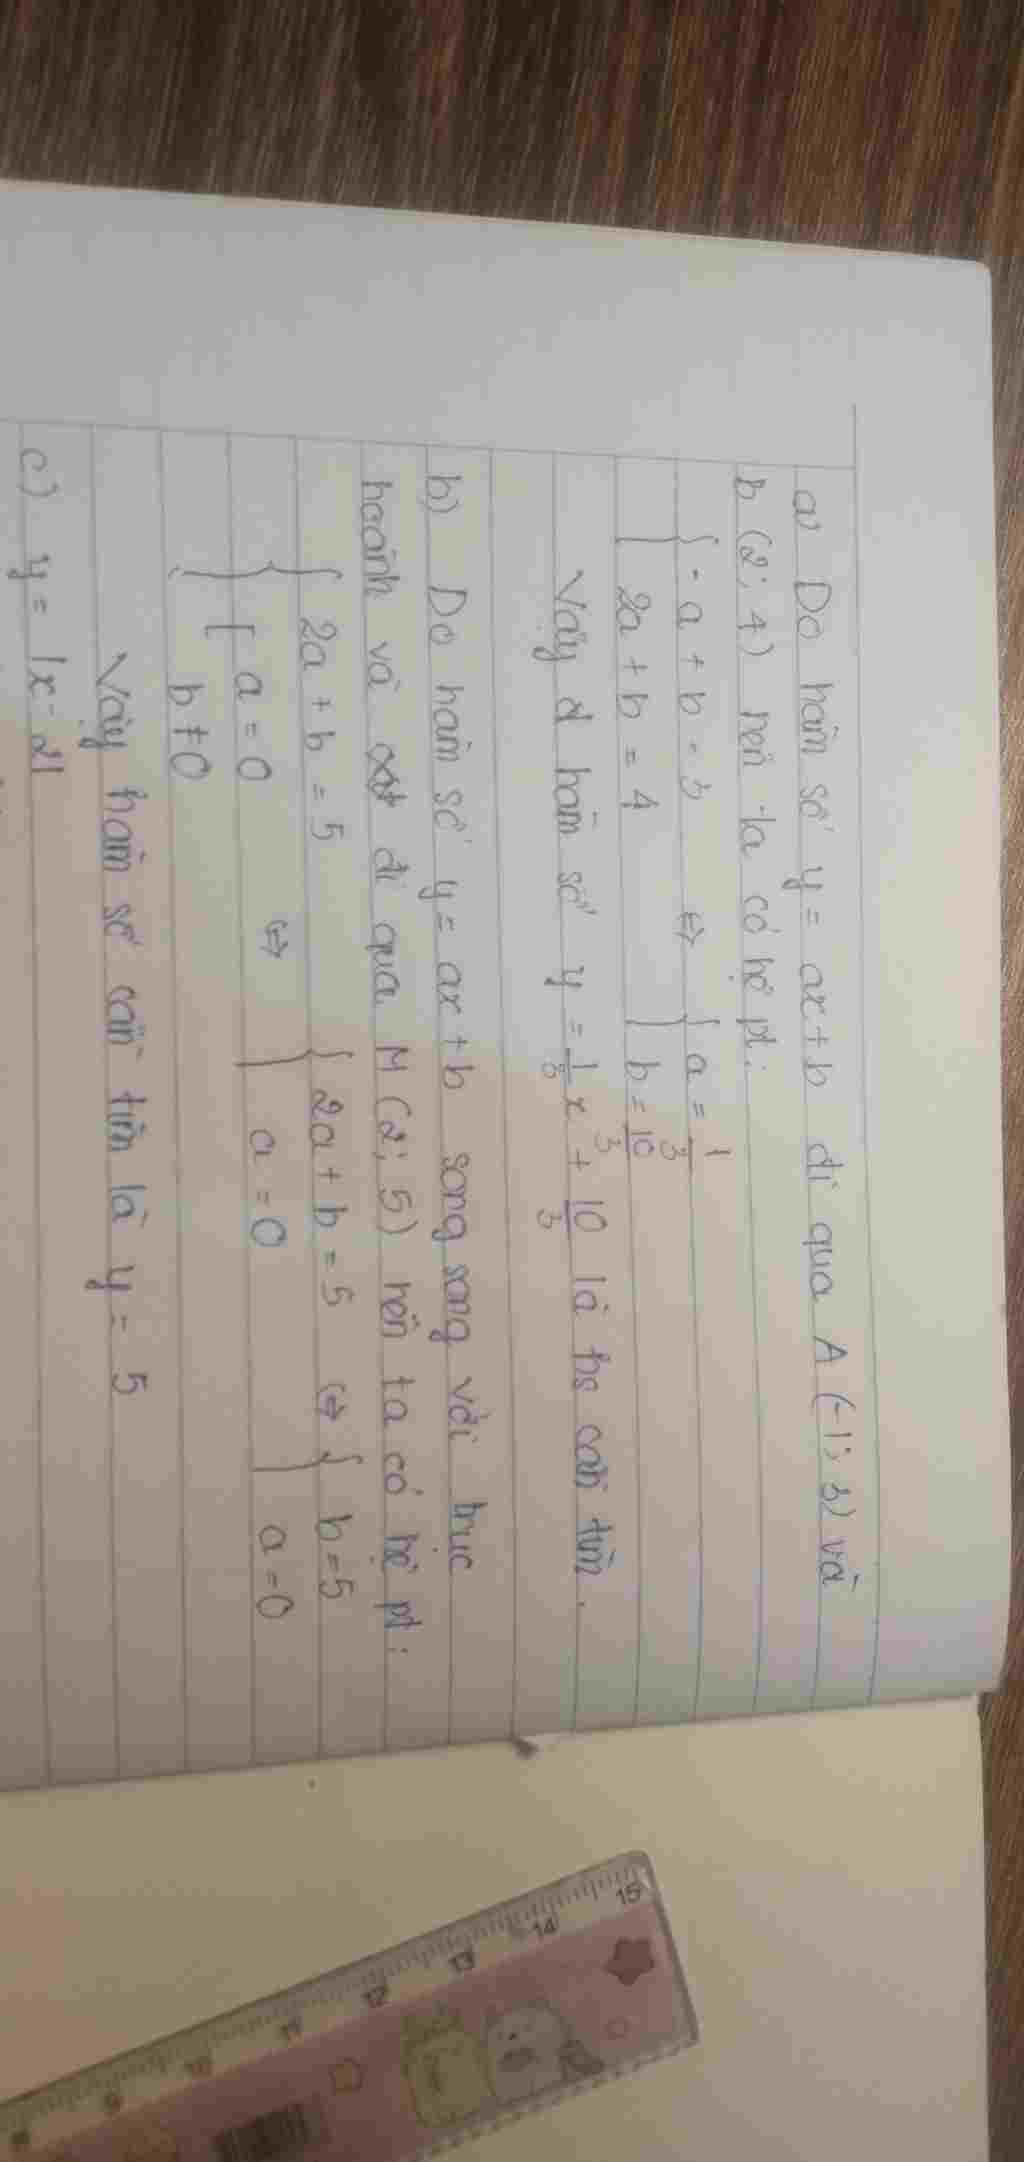 a) Do hàm số y = ax + b đi qua A (-1; 3) và
B (2; 4) nên ta có hệ pt:
{ - a + b = 3 ⇔ { a = 1/3
2a + b = 4 b = 10/3
Vậy hàm số y = 1/3 x + 10/3 là hs cần tìm.
b) Do hàm số y = ax + b song song với trục
hoành và đi qua M (2; 5) nên ta có hệ pt:
{ 2a + b = 5 ⇔ { 2a + b = 5 ⇔ { b = 5
{ a = 0 a = 0 a = 0
b ≠ 0
Vậy hàm số cần tìm là y = 5
c) y = |x - 2|
15
14
13
12
11
10
9
8